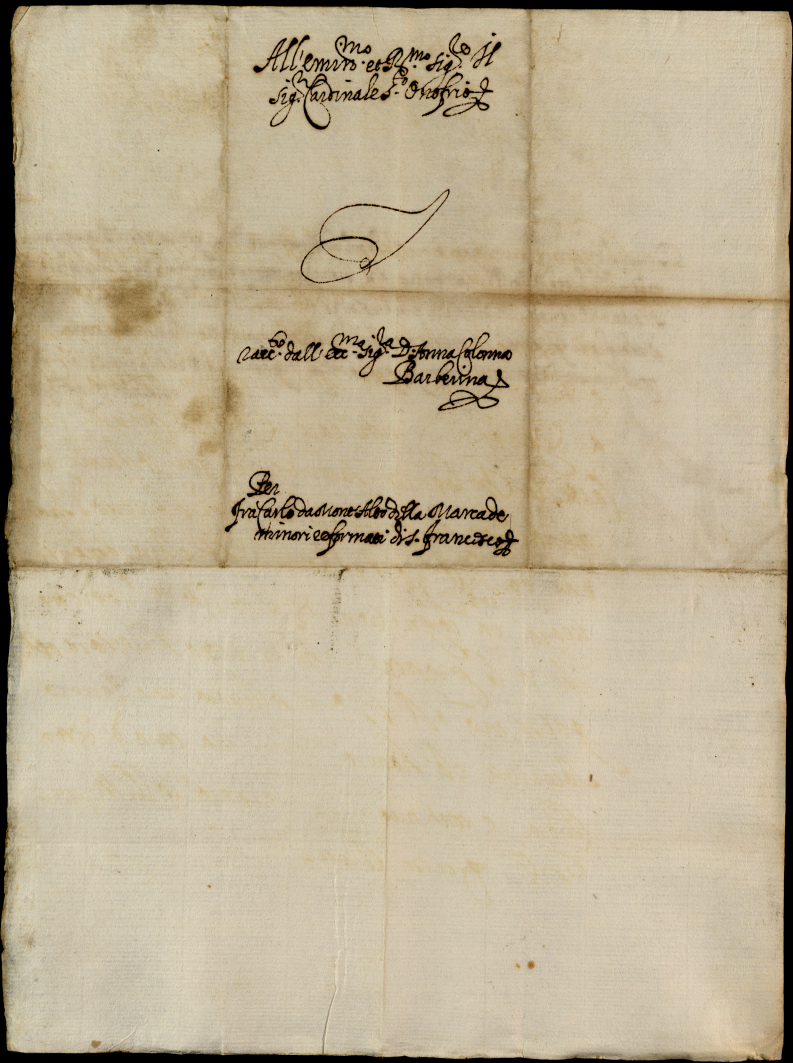 All'emin.mo et R.mo Sig.re Il
Sig.r Cardinale S.to Onofrio
Racc.ta dall'Ecc.ma Sig.ra D. Anna Colonna
Barberina
Per
fra Carlo da Mont'Alto della Marca de
minori reformati di S. francesco